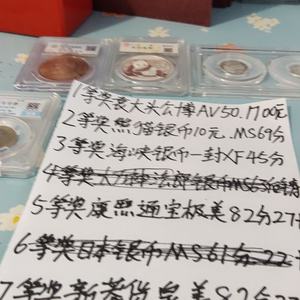 1等奖袁大头公博AV50.1700元
2等奖熊猫银币10元.MS69分
3等奖海峡银币一封XF45分
4等奖大力神法郎银币MS63
5等奖康熙通宝极美82分27
6等奖日本银币MS61分22
7等奖新莽货泉美82分